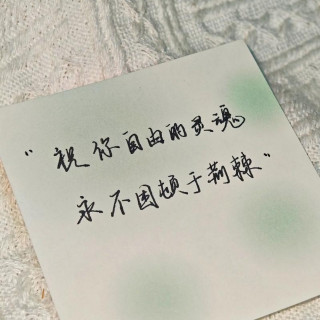 “祝你自由的灵魂
永不困顿于荆棘”